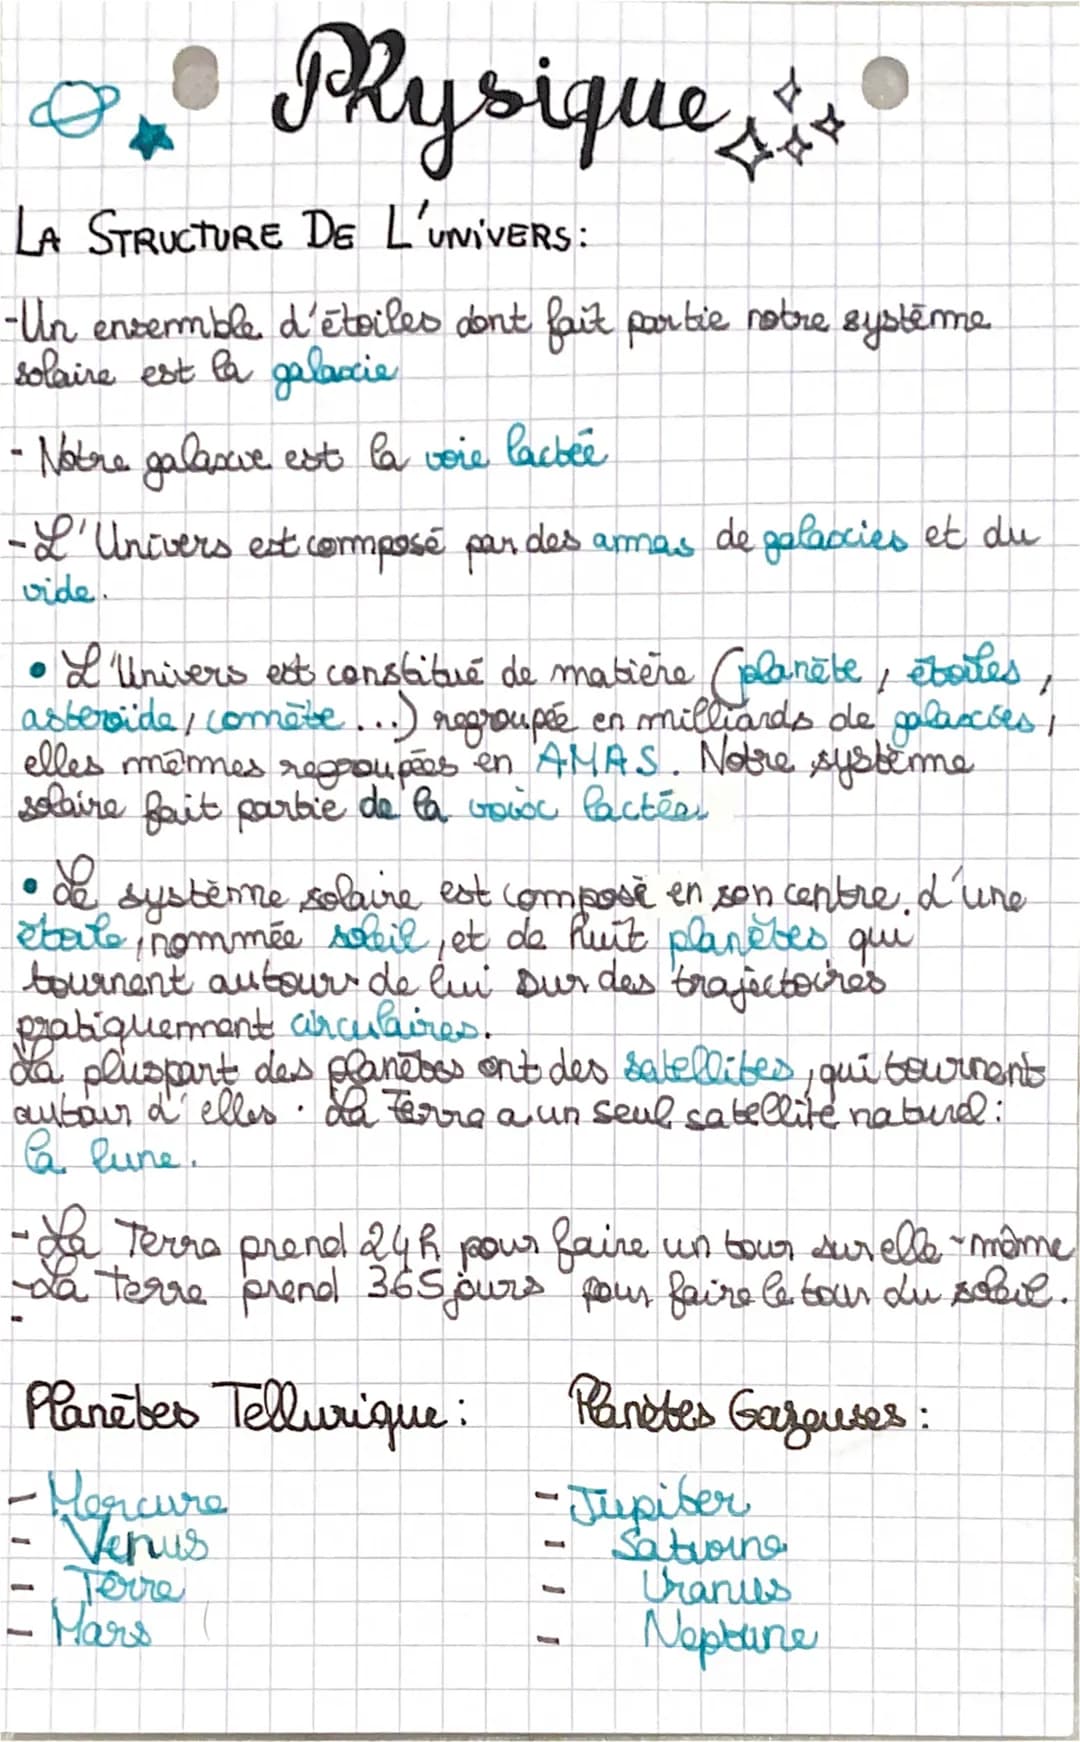 Physique
LA STRUCTURE DE L'UNIVERS:
-Un ensemble d'étoiles dont fait partie notre système
solaire est la galaxie
- Notre galaxie est la voie lactée
-L'Univers est composé par des amas de galaxies et du
vide.
• L'Univers est constitué de matière (planète, étoiles,
asteroïde, comète...) regroupée en milliards de galaxies,
elles mêmes regroupées en AMAS. Notre système
solaire fait partie de la voix lactée
• Le système solaire est composé en son centre d'une
étoile, nommée soleil, et de huit planètes qui
tournent autours de lui sur des trajectoires
pratiquement circulaires.
La pluspart des planètes ont des satellites, qui tournent
autour d'elles. La Terre a un seul satellite naturel:
la lune.
-La Terre prend 24h pour faire un tour sur elle-même
-La terre prend 365 jours pour faire le tour du soleil.
-
Planètes Tellurique:
Planètes Gazeuses:
- Mercure
- Jupiter
- Venus
- Saturne
- Terre
- Uranus
- Mars
- Neptune